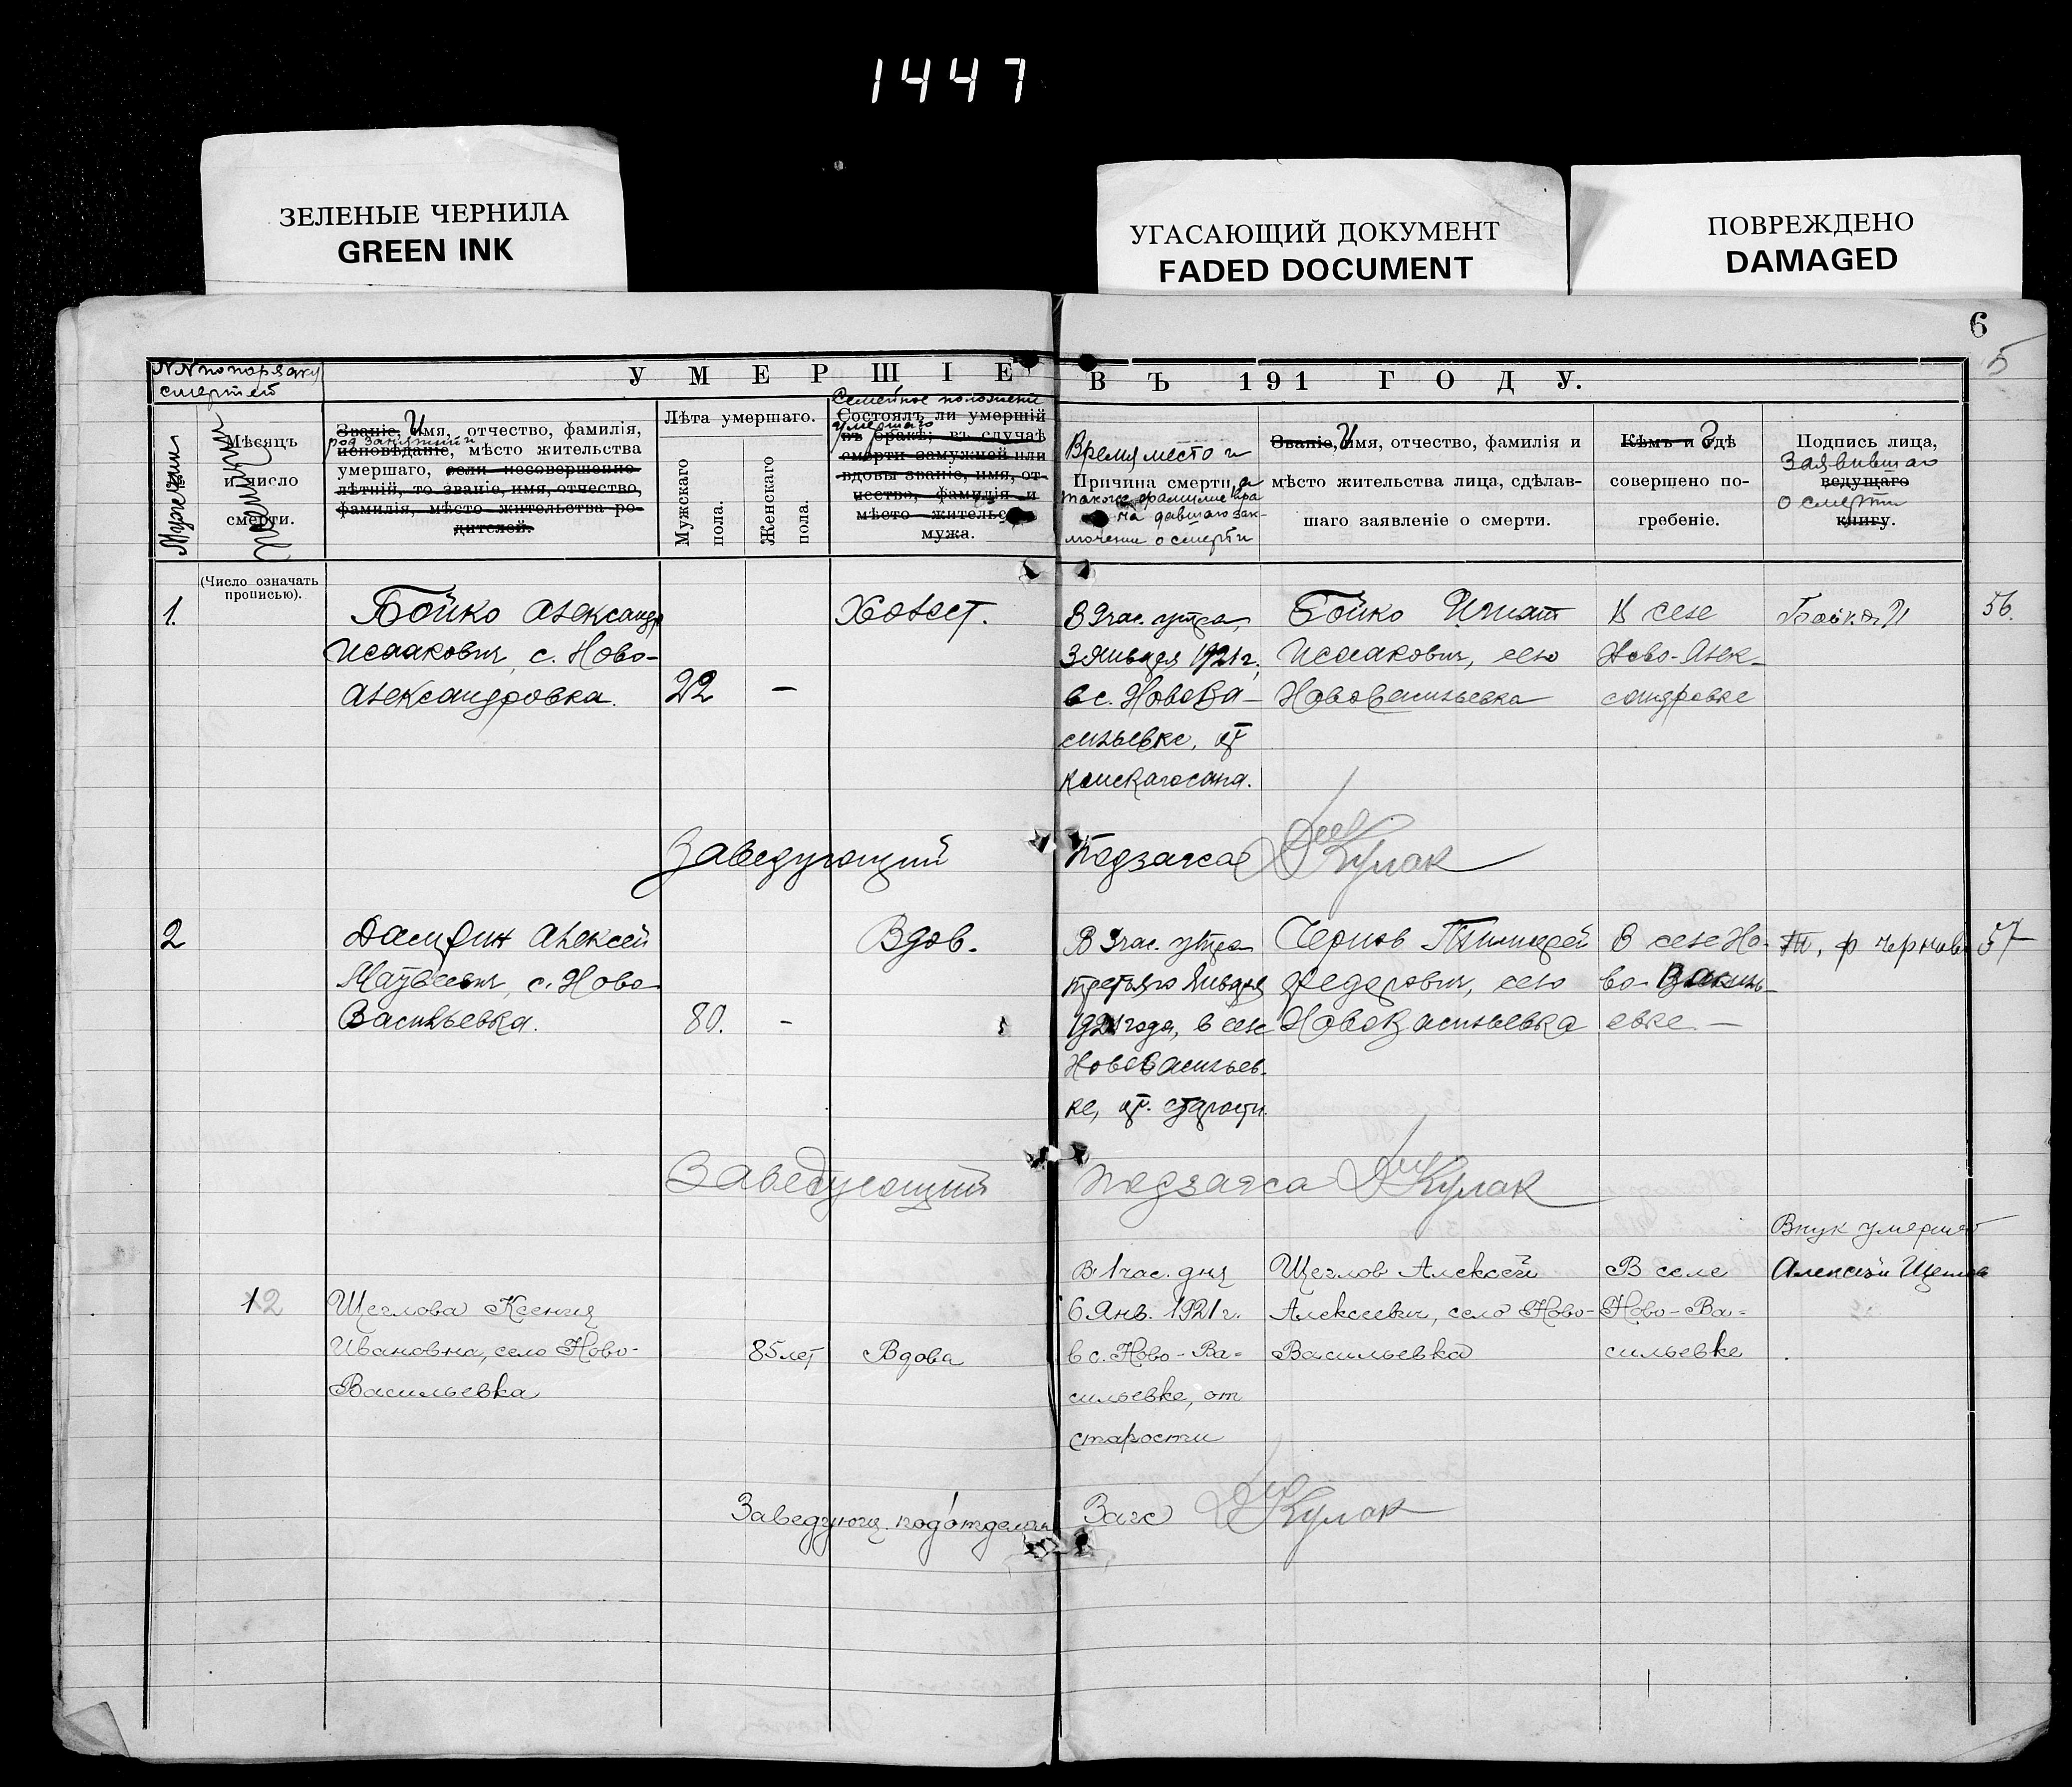 1447
ЗЕЛЕНЫЕ ЧЕРНИЛА
GREEN INK
УГАСАЮЩИЙ ДОКУМЕНТ
FADED DOCUMENT
ПОВРЕЖДЕНО
DAMAGED
6
5
NN по порядку
смертей
УМЕРШІЕ
ВЪ 191 ГОДУ.
Мужскии
Женскии
Мѣсяцъ
и число
смерти.
(Число означать
прописью).
Званіе, Имя, отчество, фамилія,
род занятий и
исповѣданіе, мѣсто жительства
умершаго, если несовершенно-
лѣтній, то званіе, имя, отчество,
фамилія, мѣсто жительства ро-
дителей.
Лѣта умершаго.
Мужскаго
пола.
Женскаго
пола.
Семейное положение
Состоялъ ли умершій
умершаго
въ бракѣ; въ случаѣ
смерти замужней или
вдовы званіе, имя, от-
чество, фамилія и
мѣсто жительс
мужа.
Время место и
Причина смерти, а
также фамилие вра
на давшаго зак-
лючение о смерти
Званіе, Имя, отчество, фамилія и
мѣсто жительства лица, сдѣлав-
шаго заявленіе о смерти.
Кѣмъ и Где
совершено по-
гребеніе.
Подпись лица,
Заявившаго
ведущаго
о смерти
книгу.
1.
Бойко Александр
Исаакович, с. Ново-
Александровка.
22
—
Холост.
В 9 час. утра,
3 Января 1921 г.,
в с. НовоВа-
сильевке, от
Бойко Игнат
Исаакович, село
НовоВасильевка
В селе
Ново-Алек-
сандровке
Бойко И
56.
Заведующий Подзагса Кулак
2
Алексей
Матвеевич, с. Ново
Васильевка.
80.
-
Вдов.
В 9 час. утра
третьяго Января
1921 года, в селе
НовоВасильев-
ке, от старости.
Чернов Тимофей
Федорович, село
НовоВасильевка
В селе Но-
во-Василь-
евке —
Т, ф Чернов
57
Заведующий Подзагса Кулак
12
Щеглова Ксения
Ивановна, село Ново-
Васильевка
85 лет
Вдова
В 1 час. дня
6 Янв. 1921 г.
в с. Ново-Ва=
сильевке, от
старости
Щеглов Алексей
Алексеевич, село Ново-
Васильевка
В селе
Ново-Ва=
сильевке
Внук умершей
Алексей Щеглов
Заведующ. подотделом Загс Кулак